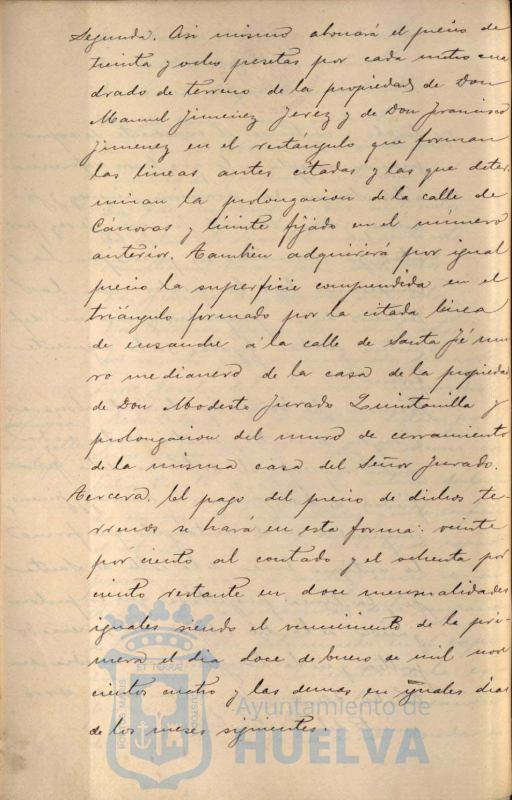 Segunda. Asi mismo abonará el precio de
treinta y ocho pesetas por cada metro cua
drado de terreno de la propiedad de Don
Manuel Jimenez Jerez y de Don Francisco
Jimenez en el rectángulo que forman
las lineas antes citadas y las que deter-
minan la prolongacion de la calle de
Cánovas y límite fijado en el número
anterior. Tambien adquirirá por igual
precio la superficie comprendida en el
triángulo formado por la citada linea
de ensanche á la calle de Santa Fé mu
ro medianero de la casa de la propiedad
de Don Modesto Jurado Quintanilla y
prolongacion del muro de cerramiento
de la misma casa del Señor Jurado.
Tercera. El pago del precio de dichos te-
rrenos se hará en esta forma: veinte
por ciento al contado y el ochenta por
ciento restante en doce mensualidades
iguales siendo el vencimiento de la pri-
mera el dia doce de Enero de mil nove
cientos cuatro y las demas en iguales dias
de los meses siguientes.
Ayuntamiento de
HUELVA